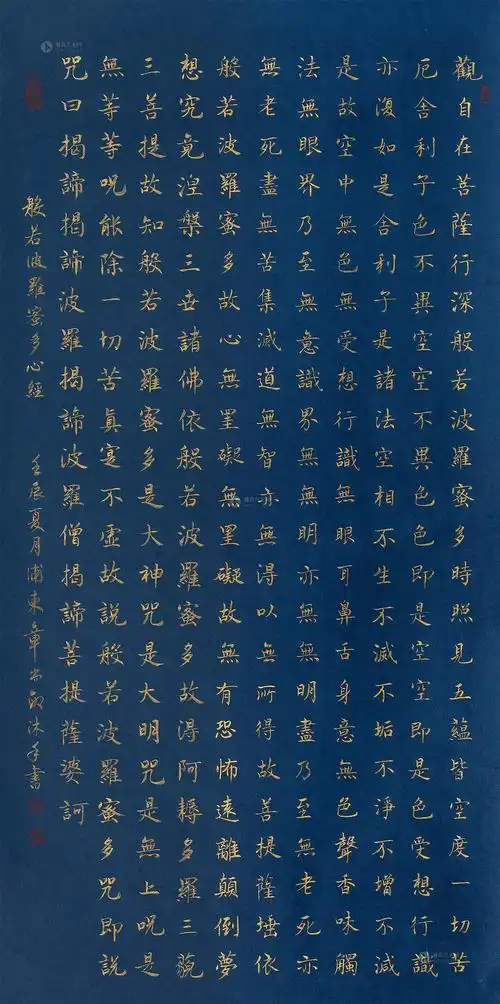 觀自在菩薩行深般若波羅蜜多時照見五蘊皆空度一切苦
厄舍利子色不異空空不異色色即是空空即是色受想行識
亦復如是舍利子是諸法空相不生不滅不垢不淨不增不減
是故空中無色無受想行識無眼耳鼻舌身意無色聲香味觸
法無眼界乃至無意識界無無明亦無無明盡乃至無老死亦
無老死盡無苦集滅道無智亦無得以無所得故菩提薩埵依
般若波羅蜜多故心無罣礙無罣礙故無有恐怖遠離顛倒夢
想究竟涅槃三世諸佛依般若波羅蜜多故得阿耨多羅三藐
三菩提故知般若波羅蜜多是大神咒是大明咒是無上呪是
無等等呪能除一切苦真寔不虛故說般若波羅蜜多咒即說
咒曰揭諦揭諦波羅揭諦波羅僧揭諦菩提薩婆訶
般若波羅蜜多心經 壬辰夏月浦東章沐手書